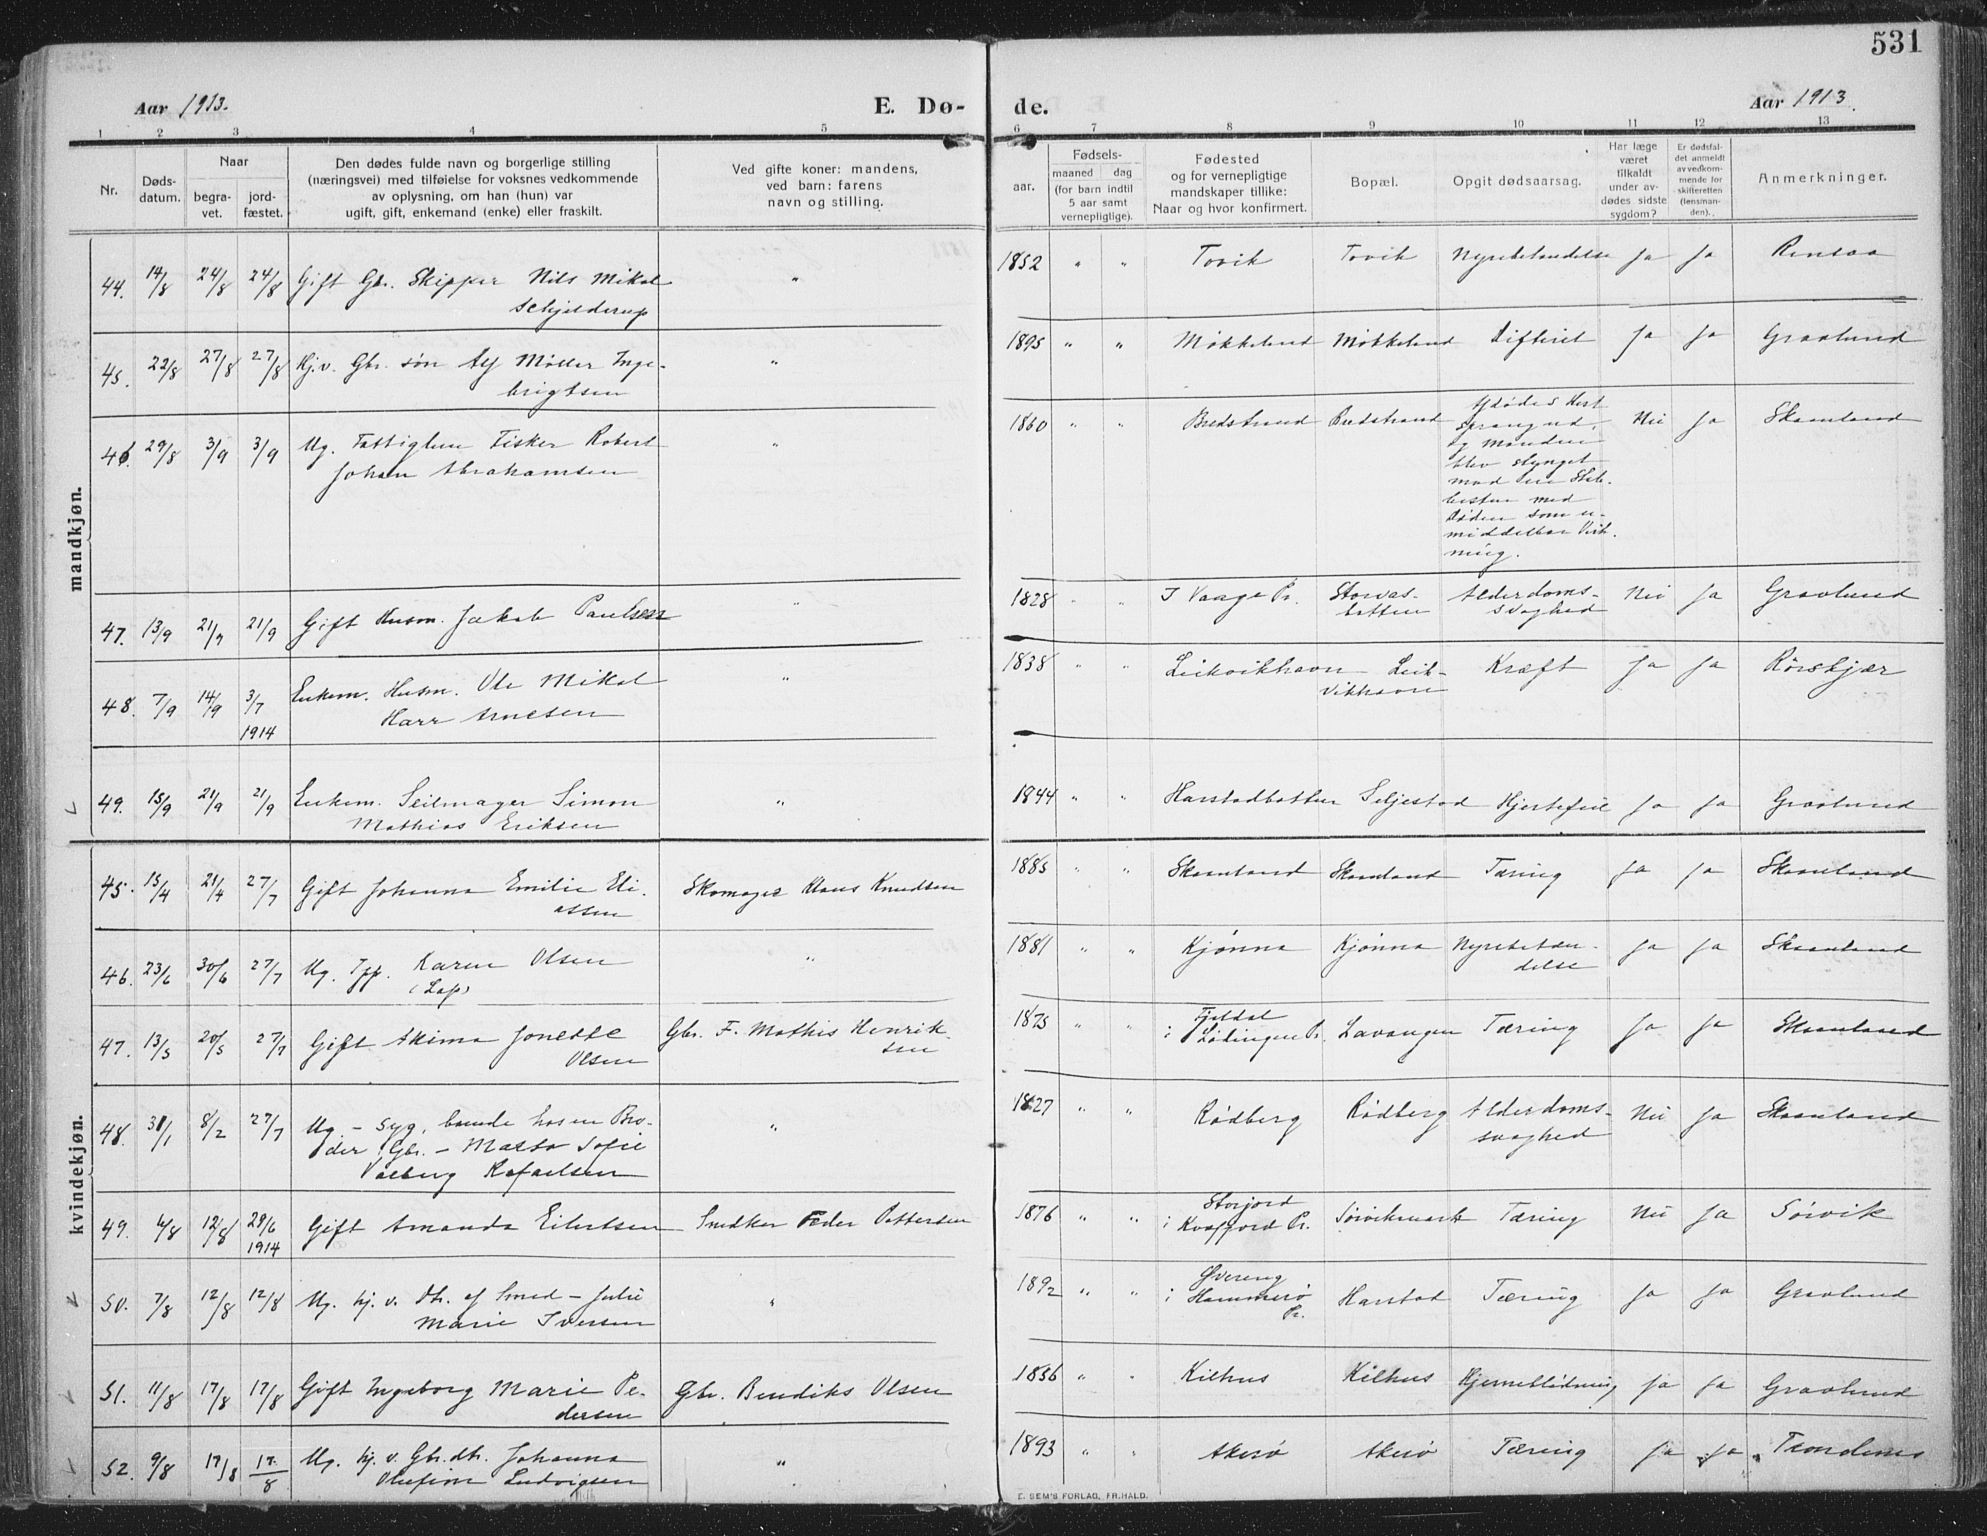 531
Aar 1913.
E. Dø-
de.
Aar 1913.
1 2 3 4 5 6 7 8 9 10 11 12 13
Nr.
Døds-
datum.
Naar
begra-
vet.
jord-
fæstet.
Den dødes fulde navn og borgerlige stilling
(næringsvei) med tilføielse for voksnes vedkommende
av oplysning, om han (hun) var
ugift, gift, enkemand (enke) eller fraskilt.
Ved gifte koner: mandens,
ved barn: farens
navn og stilling.
Fødsels-
aar.
maaned dag
(for barn indtil
5 aar samt
vernepligtige).
Fødested
og for vernepligtige
mandskaper tillike:
Naar og hvor konfirmert.
Bopæl.
Opgit dødsaarsag.
Har læge
været
tilkaldt
under av-
dødes sidste
sygdom?
Er dødsfal-
det anmeldt
av vedkom-
mende for
skifteretten
(lensman-
den).
Anmerkninger.
mandkjøn.
44. 14/8 24/8 24/8 Gift Gbr. Skipper Nils Mikal " 1852 " " Tovik Tovik Nyrebetændelse Ja Ja Rensaa
Schjelderup
45. 22/8 27/8 27/8 Hj.v. Gbr. søn Alf Møller Inge- " 1895 " " Møkkeland Møkkeland Difterit Ja Ja Gravlund
brigtsen
46. 29/8 3/9 3/9 Ug. Fattiglem Fisker Robert " 1860 " " Bredstrand Bredstrand Nei Ja Skaanland
Johan Abrahamsen
sprang ud,
og Manden
blev slynget
mod en
med
Døden som u-
middelbar Virk-
ning.
47. 13/9 21/9 21/9 Gift Husm. Jakob Paulsen " 1828 " " I Vaage Pr. Storvas- Alderdoms- Nei Ja Gravlund
botten svaghed
48. 7/9 14/9 3/7 Enkem. Husm. Ole Mikal " 1838 " " Leikvikhavn Leik- Kræft Ja Ja Rørskjær
1914 Harr Arnesen vikhavn
49. 15/9 21/9 21/9 Enkem. Seilmager Simon " 1844 " " Harstadbotten Seljestad Hjertefeil Ja Ja Gravlund
Mathias Eriksen
kvindekjøn.
45. 15/4 21/4 27/7 Gift Johanna Emilie Eli- Skomager Hans Knudsen 1885 " " Skaanland Skaanland Tæring Ja Ja Skaanland
assen
46. 23/6 30/6 27/7 Ug. Tjp. Karen Olsen " 1881 " " Kjønna Kjønna Nyrebetæn- Ja Ja Skaanland
(Lap) delse
47. 13/5 20/5 27/7 Gift Akima Jonette Gbr. F. Mathis Henrik- 1875 " " Fjeldal Lavangen Tæring Ja Ja Skaanland
Olsen sen i Lødingen Pr.
48. 31/1 8/2 27/7 Ug. – syg, boende hos en Bro- " 1827 " " Rødberg Rødberg Alderdoms- Nei Ja Skaanland
der, Gbr. – Marta Sofie svaghed
Valborg Rafaelsen
49. 4/8 12/8 29/6 Gift Amanda Eilertsen Snedker Peder Pettersen 1876 " " Storjord Sørvikmark Tæring Nei Ja Sørvik
1914 i Kvæfjord Pr.
50. 7/8 12/8 12/8 Ug. hj. v. dtr. af Smed – Julie " 1892 " " Øvereng Harstad Tæring Ja Ja Gravlund
Marie Iversen i Hammerø
Pr.
51. 11/8 17/8 17/8 Gift Ingeborg Marie Pe- Gbr. Bendiks Olsen 1856 " " Kilhus Kilhus Hjerneblødning Ja Ja Gravlund
dersen
52. 9/8 17/8 17/8 Ug. hj. v. Gbr. dtr. Johanna " 1893 " " Akerø Akerø Tæring Ja Ja Trondenes
Olufine Ludvigsen
E. SEM'S FORLAG, FR.HALD.